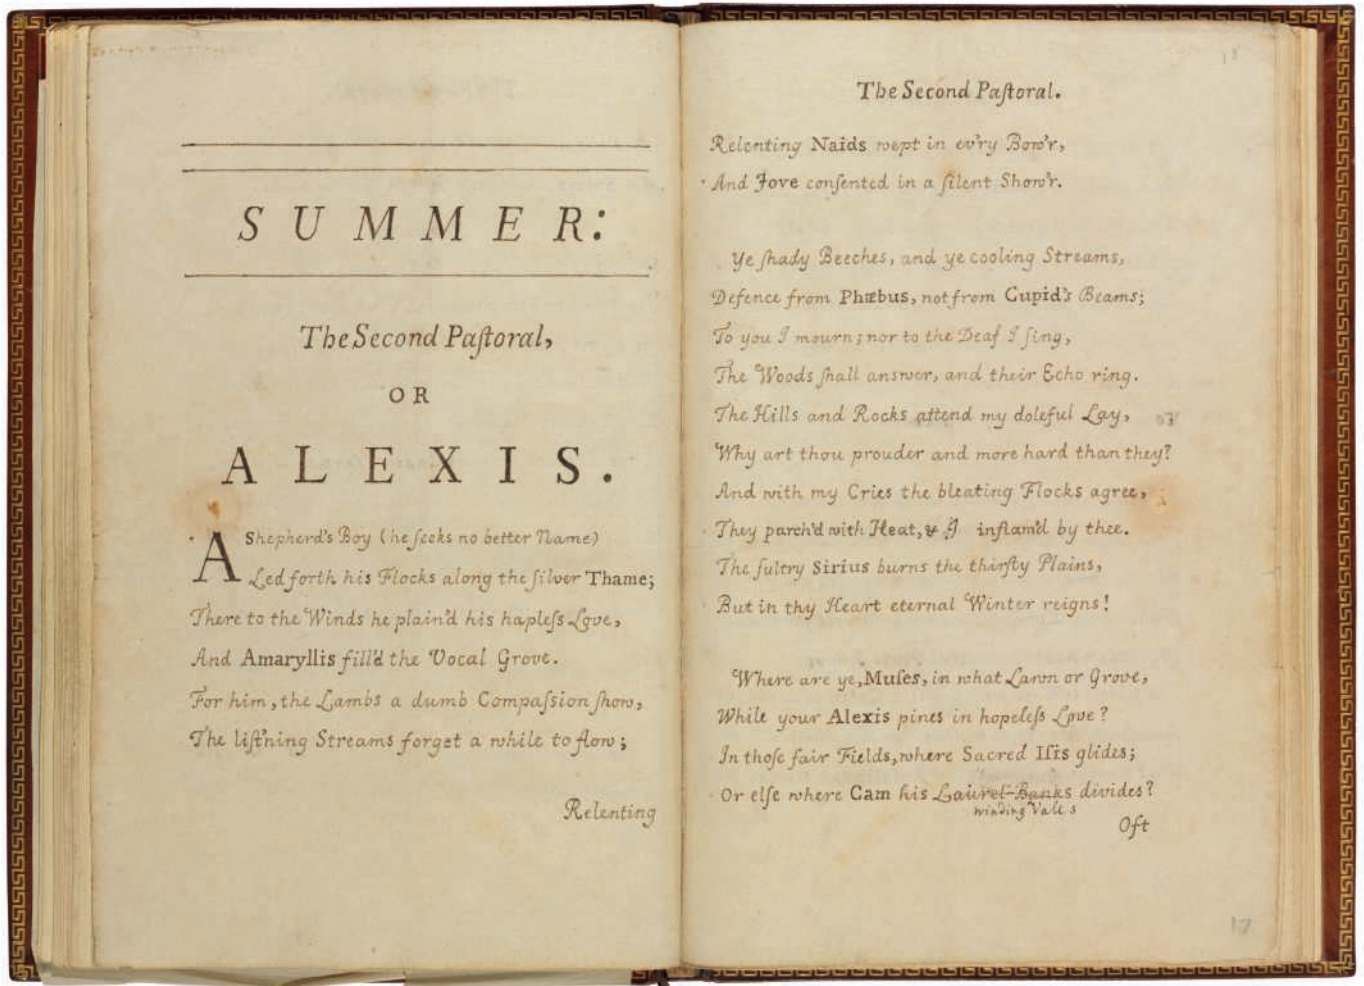 SUMMER:
The Second Paſtoral,
OR
ALEXIS.
A Shepherd's Boy (he ſeeks no better Name)
Led forth his Flocks along the ſilver Thame;
There to the Winds he plain'd his hapleſs Love,
And Amaryllis fill'd the Vocal Grove.
For him, the Lambs a dumb Compaſsion ſhow,
The liſt'ning Streams forget a while to flow;
Relenting
18
The Second Paſtoral.
Relenting Naids wept in ev'ry Bow'r,
And Jove conſented in a ſilent Show'r.
Ye ſhady Beeches, and ye cooling Streams,
Defence from Phœbus, not from Cupid's Beams;
To you I mourn; nor to the Deaf I ſing,
The Woods ſhall answer, and their Echo ring.
The Hills and Rocks attend my doleful Lay,
Why art thou prouder and more hard than they?
And with my Cries the bleating Flocks agree,
They parch'd with Heat, & I inflam'd by thee.
The ſultry Sirius burns the thirſty Plains,
But in thy Heart eternal Winter reigns!
Where are ye, Muſes, in what Lawn or Grove,
While your Alexis pines in hopeleſs Love?
In thoſe fair Fields, where Sacred Iſis glides;
Or elſe where Cam his Laurel-Banks divides?
winding Vales
Oft
17